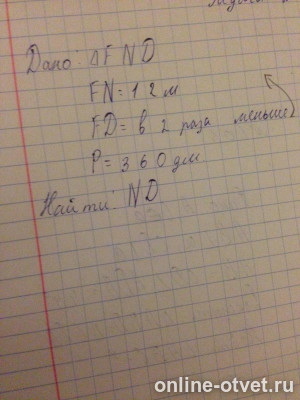 Дано: ΔFND
FN=12м
FD= в 2 раза меньше
P=360дм
Найти: ND
online-otvet.ru